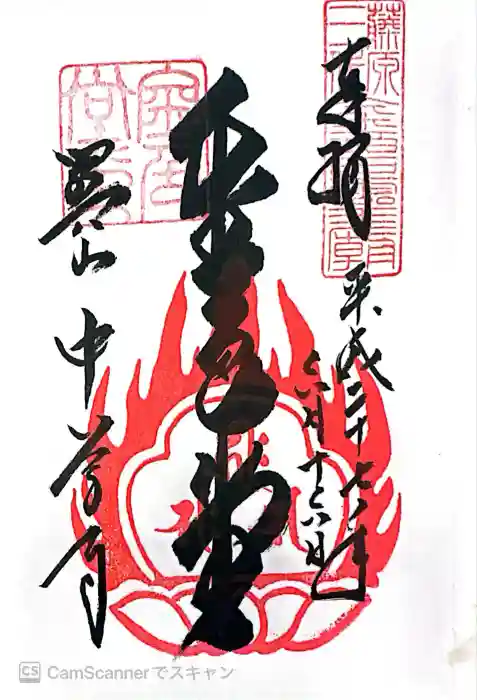 奉拝
平成二十七年
六月十六日
金色堂
関山 中尊寺
CS CamScannerでスキャン